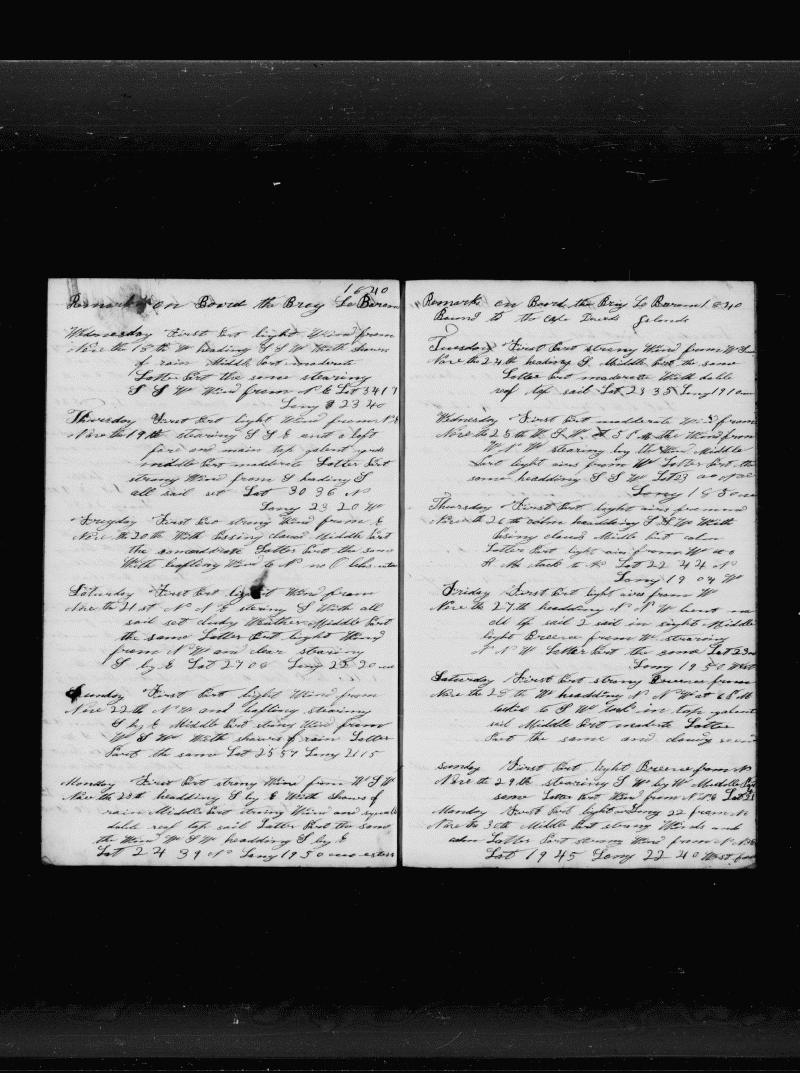 1840
Remarks on Board the Breg Le Baron
Wednesday First Part light Wind from
Nove the 18th W heading S S W With showers
of rain Middle Part moderate
Latter Part the same stearing
S S W Wind from N E Lat 34 17
Long 23 40
Thursday First Part light Wind from N E
Nove the 19th stearing S S E and a loft
fore and main top galent yards
middle Part maderate Latter Part
strong Wind from S heading S
all sail set Lat 30 36 N
Long 23 20 W
Freyday First Part strong Wind from E
Nove the 20th With Passing clowd Middle Part
the same Latter Part the same
With baffling Wind to N no
Saturday First Part light Wind from
Nove the 21st N N E stearing S With all
sail set cludy Weather Middle Part
the same Latter Part light Wind
from N W an clear stearing
S by E Lat 27 08 Long 22 20
Sunday First Part light Wind from
Nove 22th N W and bafling stearing
S by E Middle Part strong Wind from
W S W With showers of rain Latter
Part the same Lat 25 57 Long 21 15
Monday First Part strong Wind from W S W
Nove the 23th headding S by E With showers of
rain Middle Part strong Wind and squalls
duble reef top sail Latter Part the same
the Wind W S W headding S by E
Lat 24 39 N Long 19 50
Remarks on Board the Brig Le Baron 1840
Bound to the Cape Dverds Jelands
Tuesday First Part strong Wind from W S
Nove the 24th heading S Middle Part the same
Latter Part moderate With duble
reef top sail Lat 23 35 Long 19 10
Wednesday First Part madderate Wind from
Nove the 25th W S W the Wind from
W N W stearing by the Wind Middle
Part light aires from W Latter Part the
same headding S S W Lat 23
Long 18 50
Thursday First Part light aires from
Nove the 26th calm headding S S W With
Middle Part calm
Latter Part light air from W
Lat 22 44 N
Long 19 04 W
Friday First Part light aires from W
Nove the 27th headding N N W
2 sail in sight Middle
light Breeze from W stearing
N N W Latter Part the same Lat 23
Long 19 50 West
Saturday First Part strong Breeze from
Nove the 28th W headding N N W at 6 P M
tacked to S W took in top galent
sail Middle Part moderte Latter
Part the same and
Sunday First Part light Breeze from N
Nove the 29th stearing S W by W Middle Part
same Latter Part Wind from N E Lat 21
Monday First Part light Long 22 from N
Nove the 30th Middle Part strong Winds and
calm Latter Part strong Wind from N N E
Lat 19 45 Long 22 40 West